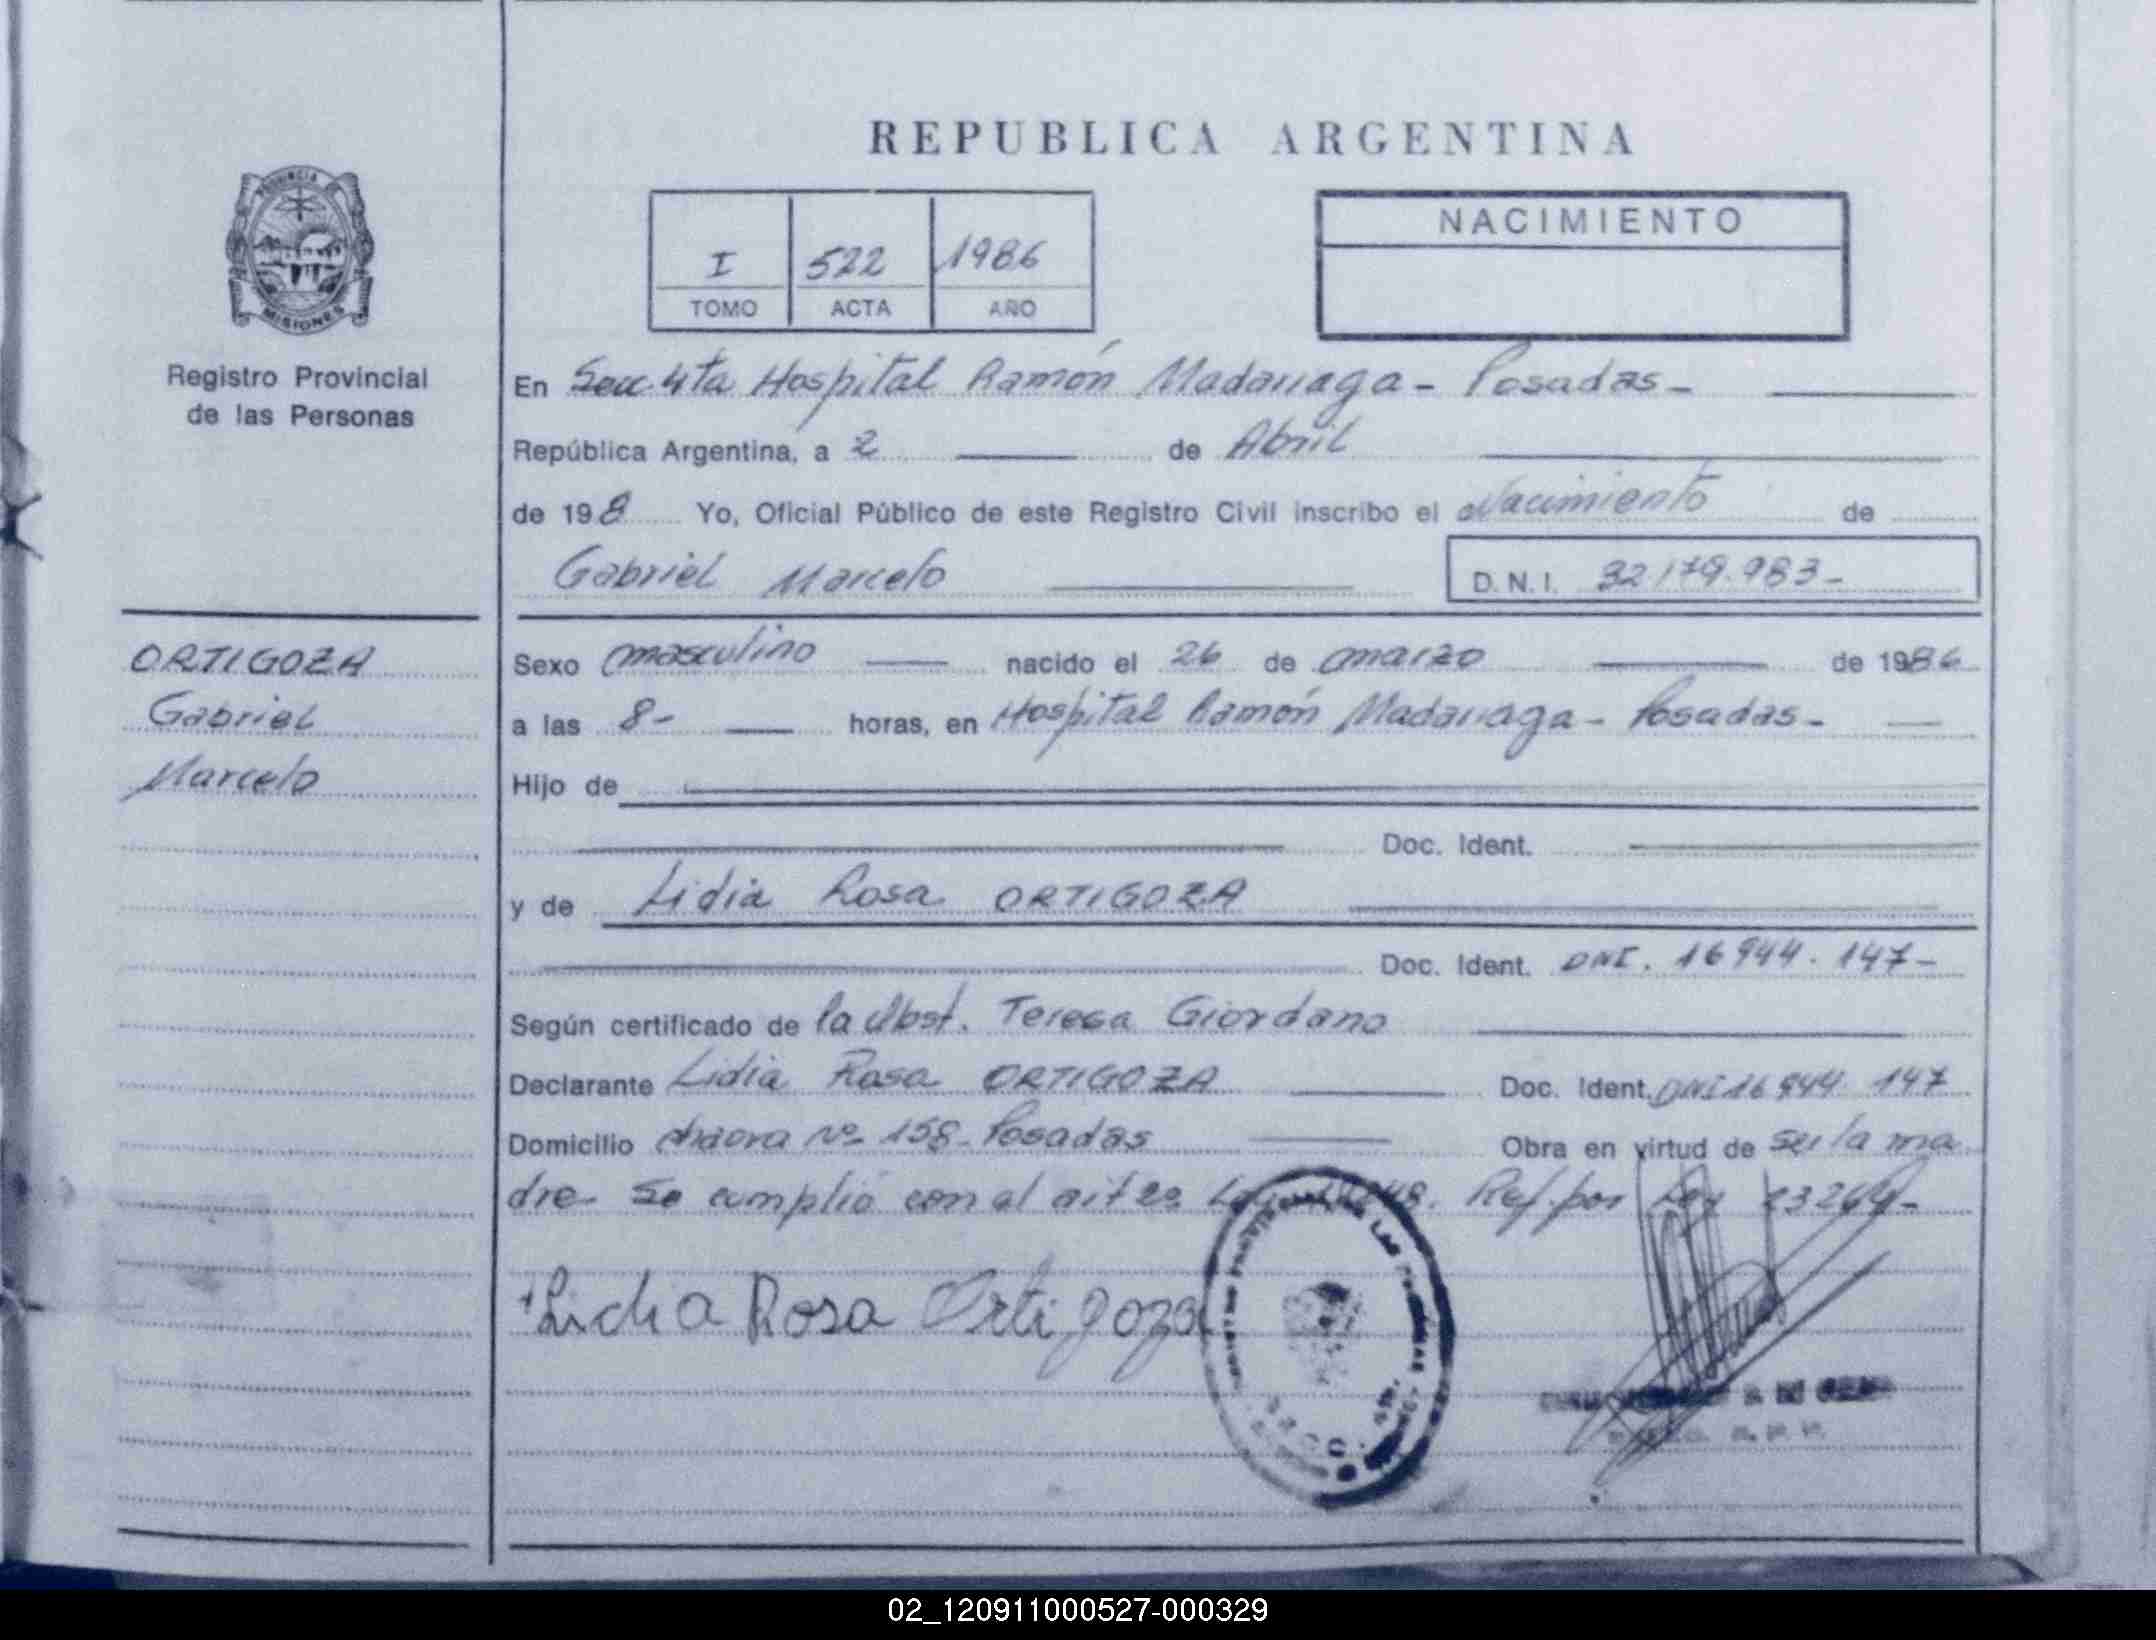 REPUBLICA ARGENTINA
PROVINCIA DE
MISIONES
Registro Provincial
de las Personas
I 522 1986
TOMO ACTA AÑO
NACIMIENTO
En Secc. 4ta Hospital Ramón Madariaga - Posadas -
República Argentina, a 2 de Abril
de 198 Yo, Oficial Público de este Registro Civil inscribo el Nacimiento de
Gabriel Marcelo D.N.I. 32.179.983-
ORTIGOZA
Gabriel
Marcelo
Sexo masculino nacido el 26 de marzo de 1986
a las 8- horas, en Hospital Ramón Madariaga - Posadas -
Hijo de
Doc. Ident.
y de Lidia Rosa ORTIGOZA
Doc. Ident. DNI. 16 944. 147-
Según certificado de la Obst. Teresa Giordano
Declarante Lidia Rosa ORTIGOZA Doc. Ident. DNI 16 944 147
Domicilio chacra Nº 158- Posadas Obra en virtud de ser la ma
dre- Se cumplió con el art 20 Ref. por Ley 23264-
Lidia Rosa Ortigoza
02_120911000527-000329